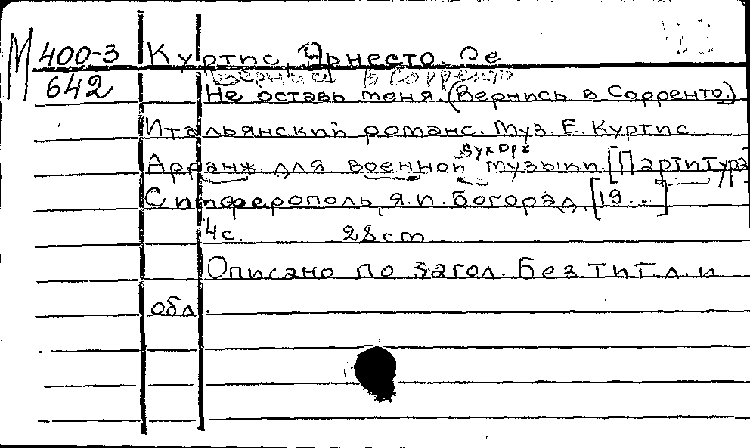 М 400-3 Куртис, Эрнесто де
642 Вернись в Сорренто
Не оставь меня. (Вернись в Сорренто)
Итальянский романс. Муз. Е. Куртис
Арранж. для военной музыки. [Партитура]
Симферополь, Я.П. Богорад, [19...]
4с. 28cm
Описано по загол. Без тит. л. и
обл.